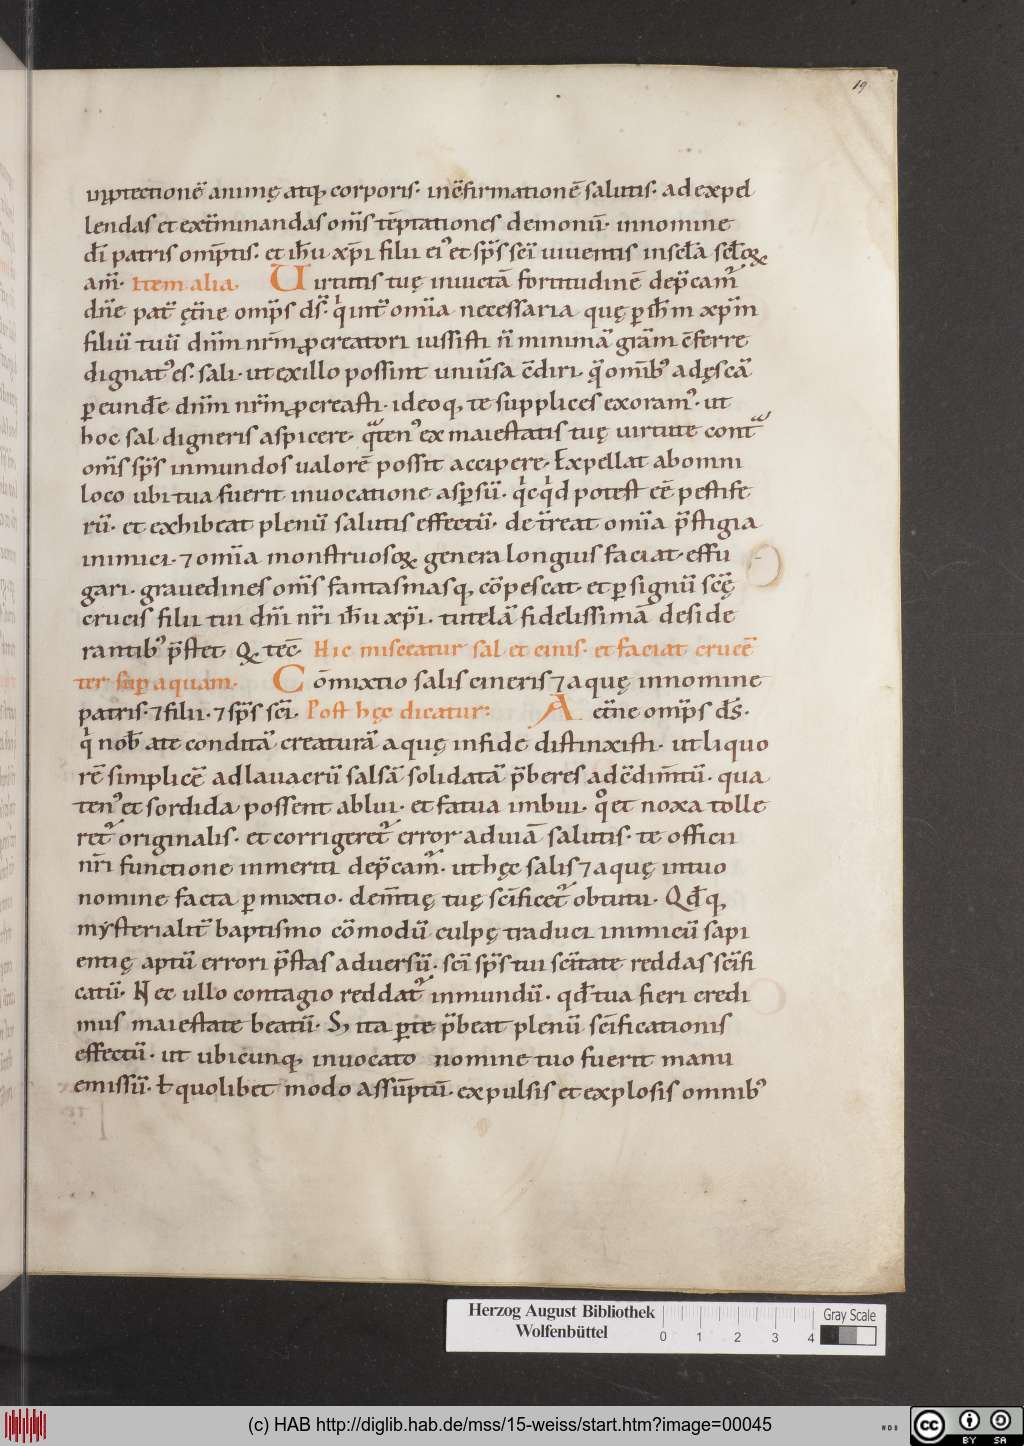 19
inp̱tectionē animę atq; corporis· inc̄firmationē salutis· ad expel
lendas et ext̄minandas om̄s tēptationes demonū· innomine
dī patris omp̄tis· et ih̄u xp̄i filii ei᾽ et sp̄s sc̄i uiuentis insc̄la sc̄loꝝ
am̄· Item alia· Uirtutis tuę inuictā fortitudinē dep̄cam᾽
dn̄e pat̄ ęt̄ne omp̄s ds̄· qͥ int̄ om̄ia necessaria quę ꝑ ih̄m xp̄m
filiū tuū dn̄m nr̄m ꝓcreatori iussisti n̄ minimā grām c̄ferre
dignat᾽ es· sali· ut ex illo possint uniūsa c̄diri· quē omib᾽ ad ęscā
ꝑ eunde dn̄m nr̄m ꝓcreasti· ideoq; te supplices exoram᾽· ut
hoc sal digneris aspicere· qͣten᾽ ex maiestatis tuę uirtute cont̄
om̄s sp̄s inmundos ualorē possit accipere· Expellat ab omni
loco ubi tua fuerit inuocatione aspsū· qͥcqͥd potest eē pestife
rū· et exhibeat plenū salutis effectū· det̄reat om̄ia p̄stigia
inimici· ⁊ om̄ia monstruosoꝝ genera longius faciat effu
gari· grauedines om̄s fantasmasq; cōpescat· et ꝑ signū sc̄ę
crucis filii tui dn̄i nr̄i ih̄u xp̄i· tutelā fidelissimā deside
rantib᾽ p̄stet· Q· tec̄· Hic misceatur sal et cinis· et faciat crucē
ter sup aquam· Cōmixtio salis cineris ⁊ aquę innomine
patris· ⁊ filii· ⁊ sp̄s sc̄i· Post hęc dicatur: Aet̄ne omp̄s ds̄·
qͥ nob̄ ate conditā creaturā aquę infide distinxisti· ut liquo
rē simplicē ad lauacrū salsā solidatā p̄beres ad c̄dim̄tū· qua
ten᾽ et sordida possent ablui· et fatua imbui· qͦ et noxa tolle
ret᾽ originalis· et corrigeret᾽ error ad uiā salutis· te officii
nr̄i functione inmeriti dep̄cam᾽· ut hęc salis ⁊ aquę intuo
nomine facta ꝑ mixtio· clem̄tię tuę sc̄ificet᾽ obtutu· Qd̄q;
mysterialit̄ baptismo cōmodū culpę traduci inimicū sapi
entię aptū errori p̄stas aduersū· sc̄i sp̄s tui sc̄itate reddas sc̄ifi
catū· Nec ullo contagio reddat᾽ inmundū· qd̄ tua fieri credi
mus maiestate beatū· S; ita ꝑ te p̄beat plenū sc̄ificationis
effectū· ut ubicunq; inuocato nomine tuo fuerit manu
emissū· ł quolibet modo assūptū· expulsis et explosis omnib᾽
Herzog August Bibliothek
Wolfenbüttel
0 1 2 3 4
Gray Scale
(c) HAB http://diglib.hab.de/mss/15-weiss/start.htm?image=00045
cc BY SA